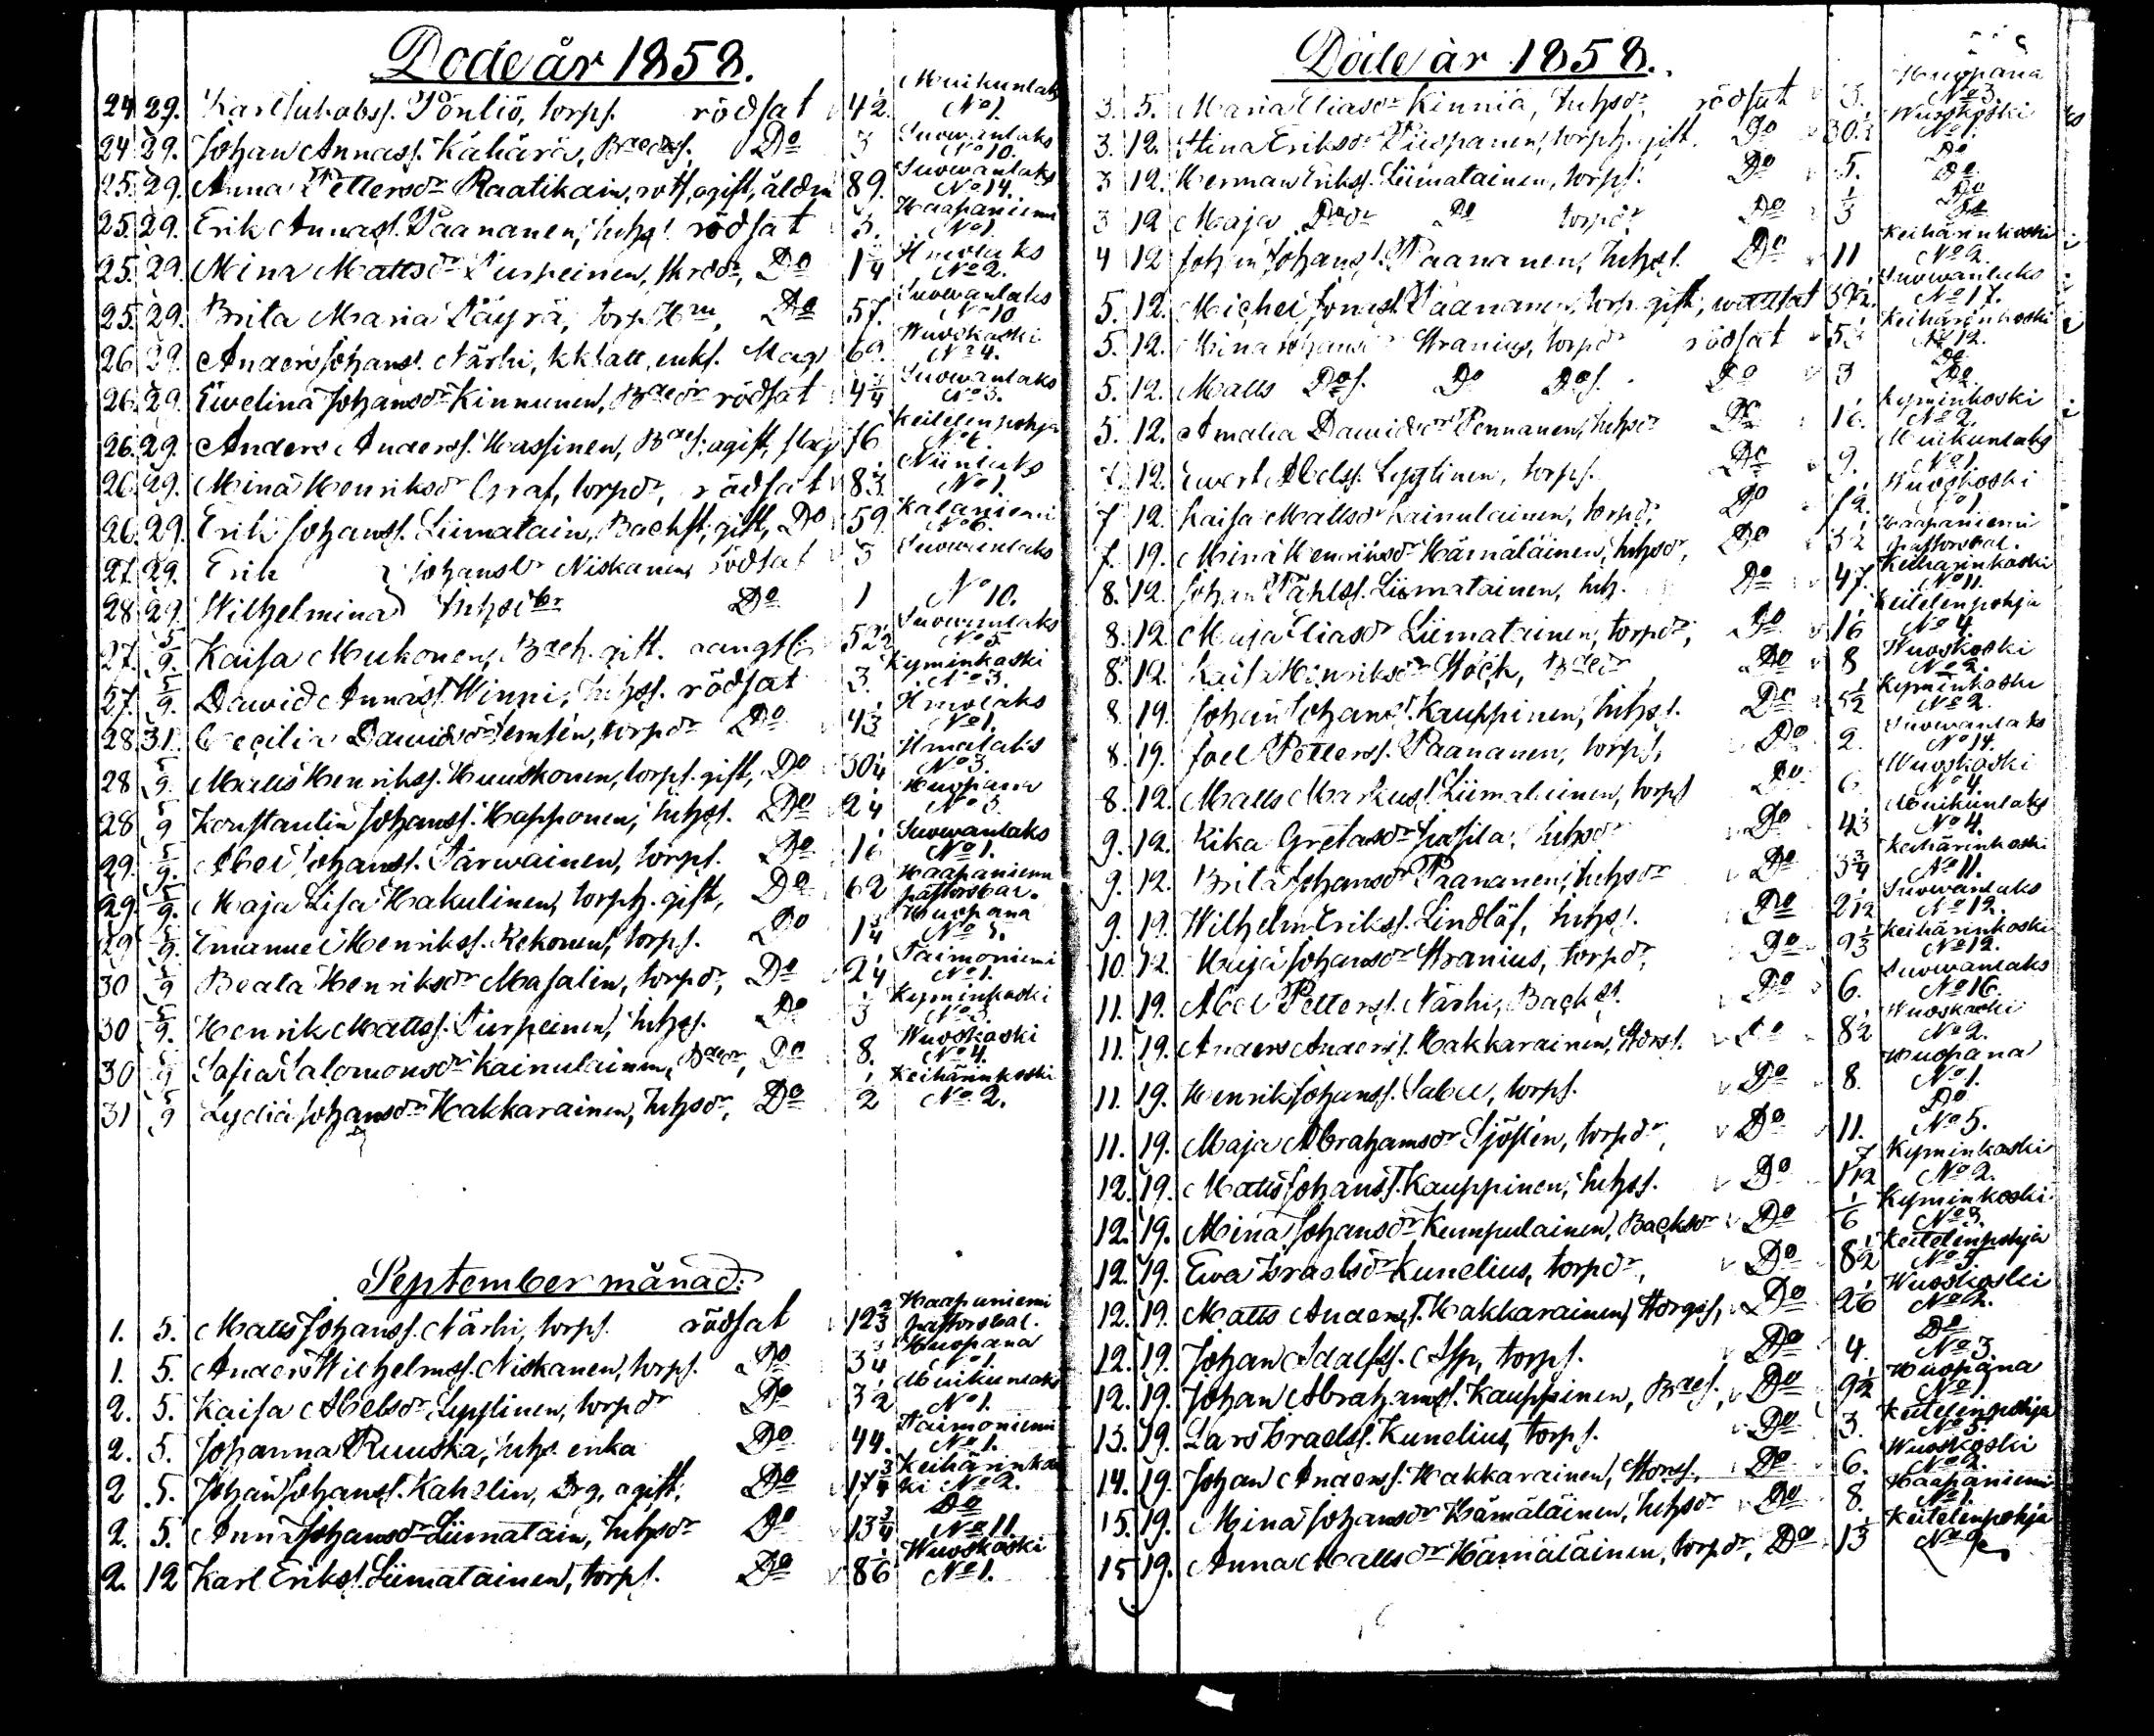 Döde år 1858.
24 29. Karl Jakobss. Pönliö, torps. rödsot 4½ Muikunlaks No 1.
24 29. Johan Annass. Kähärä, Baecks. Do 3 Suowanlaks No 10.
25. 29. Anna Pettersdr Raatikain, rotf, ogift, åldm 89. Suowanlaks No 14.
25. 29. Erik Annass. Paananen, inhs. rödsot 3. Haapaniemi No 1.
25. 29. Mina Mattsdr Turpeinen, skrddr, Do 1¼ Hmolaks No 2.
25. 29. Brita Maria Päyrä, torp. Hru, Do 57. Suowanlaks No 10
26 29. Anders Johanss. Närhi, enkl. Mag 69. Wuoskoski No 4.
26. 29. Ewelina Johansdr Kinnunen, rödsot 4¾ Suowanlaks No 3.
26. 29. Anders Anderss. Hassinen, ogift, slag 76 Keitelenpohja
26. 29. Mina Henriksdr Graf, torpdr, rödsot 8⅓ Niinlaks No 1.
26. 29. Erik Johanss. Liimatain, Backst, gift, Do 59. Kalaniemi No 6.
27. 29. Erik } Johanss dr Niskanen rödsot 3 Suowanlaks
28. 29. Wilhelmina } Inhs Do 1 No 10.
27. 5/9. Kaisa Mukonen, gift. 52½ Suowanlaks No 5.
27. 5/9. Dawid Annass. Winni, Inhss. rödsot 3. Kyminkoski No 3.
28 31. Cecilia Dawidsdr Jemtén, torpdr Do 4⅓ Hmolaks No 1.
28 5/9. Matts Henrikss. Huuskonen, torps. gift, Do 30¼ Hmolaks No 3.
28 5/9 Konstantin Johanss. Happonen, Inhss. Do 2¼ Huopana No 3
29. 5/9. Abel Johanss. Tarwainen, torps. Do Suowanlaks No 1.
29. 5/9. Maja Lisa Hakulinen, torph. gift, Do 62 Haapaniemi pastorsbol.
29 5/9. Emanuel Henrikss. Kekonen, torps. Do 1¾ Huopana
30 5/9 Beata Henriksdr Masalin, torpdr, Do 2¼ Taimoniemi No 1.
30 5/9. Henrik Mattss. Turpeinen, Inhss. Do 3 Kyminkoski No 3.
30 5/9 Sofia Salomonsdr Kainulainen, Do 8. Wuoskoski No 4.
31 5/9 Lydia Johansdr Hakkarainen, Inhsdr, Do ½ Keihärinkoski No 2.
September månad:
1. 5. Matts Johanss. Närhi, torps. rödsot 12⅔ Haapaniemi pastorsbol.
1. 5. Anders Wilhelmss. Niskanen, torps. Do 3¾ Huopana No 1.
2. 5. Kaisa Abelsdr Lyytinen, torpdr Do 3½ Muikunlaks No 1.
2. 5. Johanna Ruuska, Inhs. enka Do 44. Taimoniemi No 1.
2 5. Johan Johanss. Kahelin, Drg, ogift, Do 17¾ Keihärinkoski No 2.
2. 5. Anna Johansdr Liimatain, Inhsdr Do 13¾ Do No 11.
2. 12 Karl Erikss. Liimatainen, torps. Do 8⅙ Wuoskoski No 1.
Döde år 1858.
3. 5. Maria Eliasdr Kinnia, Inhsdr, rödsot 3. Huopana No 3.
3. 12. Stina Eriksdr Piispanen, torph. gift. Do 30½ Wuoskoski No 1.
3 12. Herman Erikss. Liimatainen, torps. Do 5. Do Do
3 12 Maja Dodr Do torpdr Do ⅓ Do Do
4 12 Johan Johanss. Paananen, Inhss. Do 11 Keihärinkoski No 2.
5. 12. Michel Jonass. Paananen, torp. gift, wattsot 39½ Suowanlaks No 17.
5. 12. Mina Johansdr Stranius, torpdr rödsot 5⅓ Keihärinkoski No 12.
5. 12. Matts Dos. Do Dos. Do 3 Do Do
5. 12. Amalia Dawidsdr Pennanen, Inhsdr Do Kyminkoski No 2.
7. 12. Ewert Abelss. Lyytinen, torps. Do 9. Muikunlaks No 1.
7 12. Kaisa Mattsdr Kainulainen, torpdr, Do Wuoskoski No 1.
7. 19. Mina Henriksdr Hämäläinen, Inhsdr, Do 3½ Haapaniemi pastorsbol.
8. 12. Johan Påhlss. Liimatainen, Inh. Do 47. Keihärinkoski No 11.
8. 12 Maja Eliasdr Liimatainen, torpdr, Do Keitelenpohja No 4
8. 12. Kaisa Henriksdr Höök, Do 8 Wuoskoski No 2.
8. 19. Johan Johanss. Kauppinen, Inhss. Do 5½ Kyminkoski No 2.
8. 19. Joel Petterss. Paananen, torps, Do 2. Suowanlaks No 14.
8. 12. Matts Markuss. Liimatainen, torps Do 6. Wuoskoski No 4.
9. 12. Kika Gretasdr Inhsdr Do 4⅓ Muikunlaks No 4.
9. 12. Brita Johansdr Paananen, Inhsdr Do 3¾ Keihärinkoski No 11.
9. 19. Wilhelm Erikss. Lindlöf, Inhss. Do Suowanlaks No 12.
10. 12. Maja Johansdr Stranius, torpdr, Do 9⅓ Keihärinkoski No 12.
11. 19. Abel Petterss. Närhi, Backs. Do 6. Suowanlaks No 16.
11. 19. Anders Anderss. Hakkarainen, Do 8½ Wuoskoski No 2.
11. 19. Henrik Johanss. Sabel, torps. Do 8. Huopana No 1.
11. 19. Maja Abrahamsdr Sjöstén, torpdr, Do 11. Do No 5.
12. 19. Matts Johanss. Kauppinen, Inhss. Do Kyminkoski No 2.
12. 19. Mina Johansdr Kumpulainen, Backsdr Do ⅙ Kyminkoski No 3.
12. 19. Ewa Israelsdr Kunelius, torpdr, Do 8½ Keitelenpohja No 5.
12. 19. Matts Anderss. Hakkarainen, Do 2⅙ Wuoskoski No 2.
12. 19. Johan Adolfss. Asp, torps. Do 4. Do No 3.
12. 19. Johan Abrahamss. Kauppinen, Do 9½ Huopana No 1.
13. 19. Lars Israelss. Kunelius, torps. Do 3. Keitelenpohja No 5.
14. 19. Johan Anderss. Hakkarainen, Do 6. Wuoskoski No 2.
15. 19. Mina Johansdr Hämäläinen, Inhsdr Do 8. Haapaniemi No 1.
15 19. Anna Mattsdr Hämäläinen, torpdr, Do 1⅓ Keitelenpohja